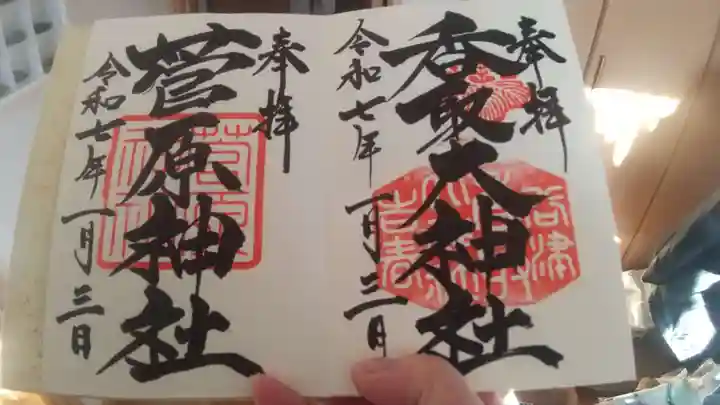 奉拝
香取大神社
令和七年
一月三日
奉拝
菅原神社
令和七年
一月三日
菅原神社